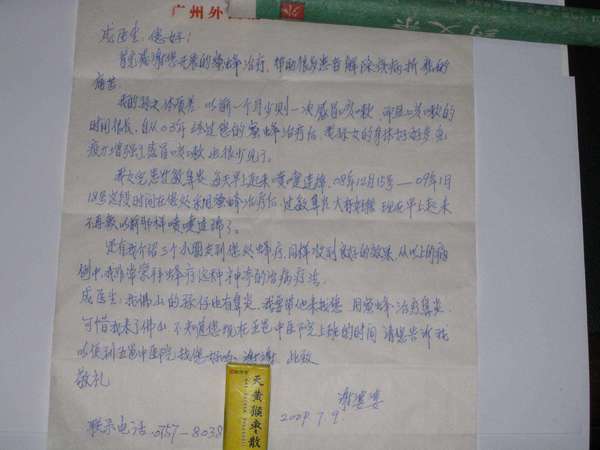 广州外
成医生：您好！
首先感谢您几年来的蜜蜂治疗，帮助很多患者解除疾病折磨的
痛苦。
我的孙女体质差，以前一个月少则一次感冒咳嗽，而且咳嗽的
时间很长，自从05年经过您的蜜蜂治疗后，我孙女的身体好好多，免
疫力增强了感冒咳嗽也很少见了。
我女儿患过敏鼻炎，每天早上起来喷嚏连绵，08年12月15号——09年1月
18号这段时间在您处采用蜜蜂治疗后，过敏鼻炎大有好转 现在早上起来
不再象以前那样喷嚏连绵了。
还有我介绍三个小朋友到您处蜂疗，同样收到良好的效果，从以上的病
例中，我非常崇拜蜂疗这种神奇的治病疗法。
成医生：我佛山的孙仔也有鼻炎，我要带他来找您 用蜜蜂治疗鼻炎，
可惜我来了佛山，不知道您现在五邑中医院上班的时间 请您告诉我
以便到五邑中医院找您好吗 谢谢 此致
敬礼
谢
联系电话：0757-8038
2009.7.9
天黄猴枣散